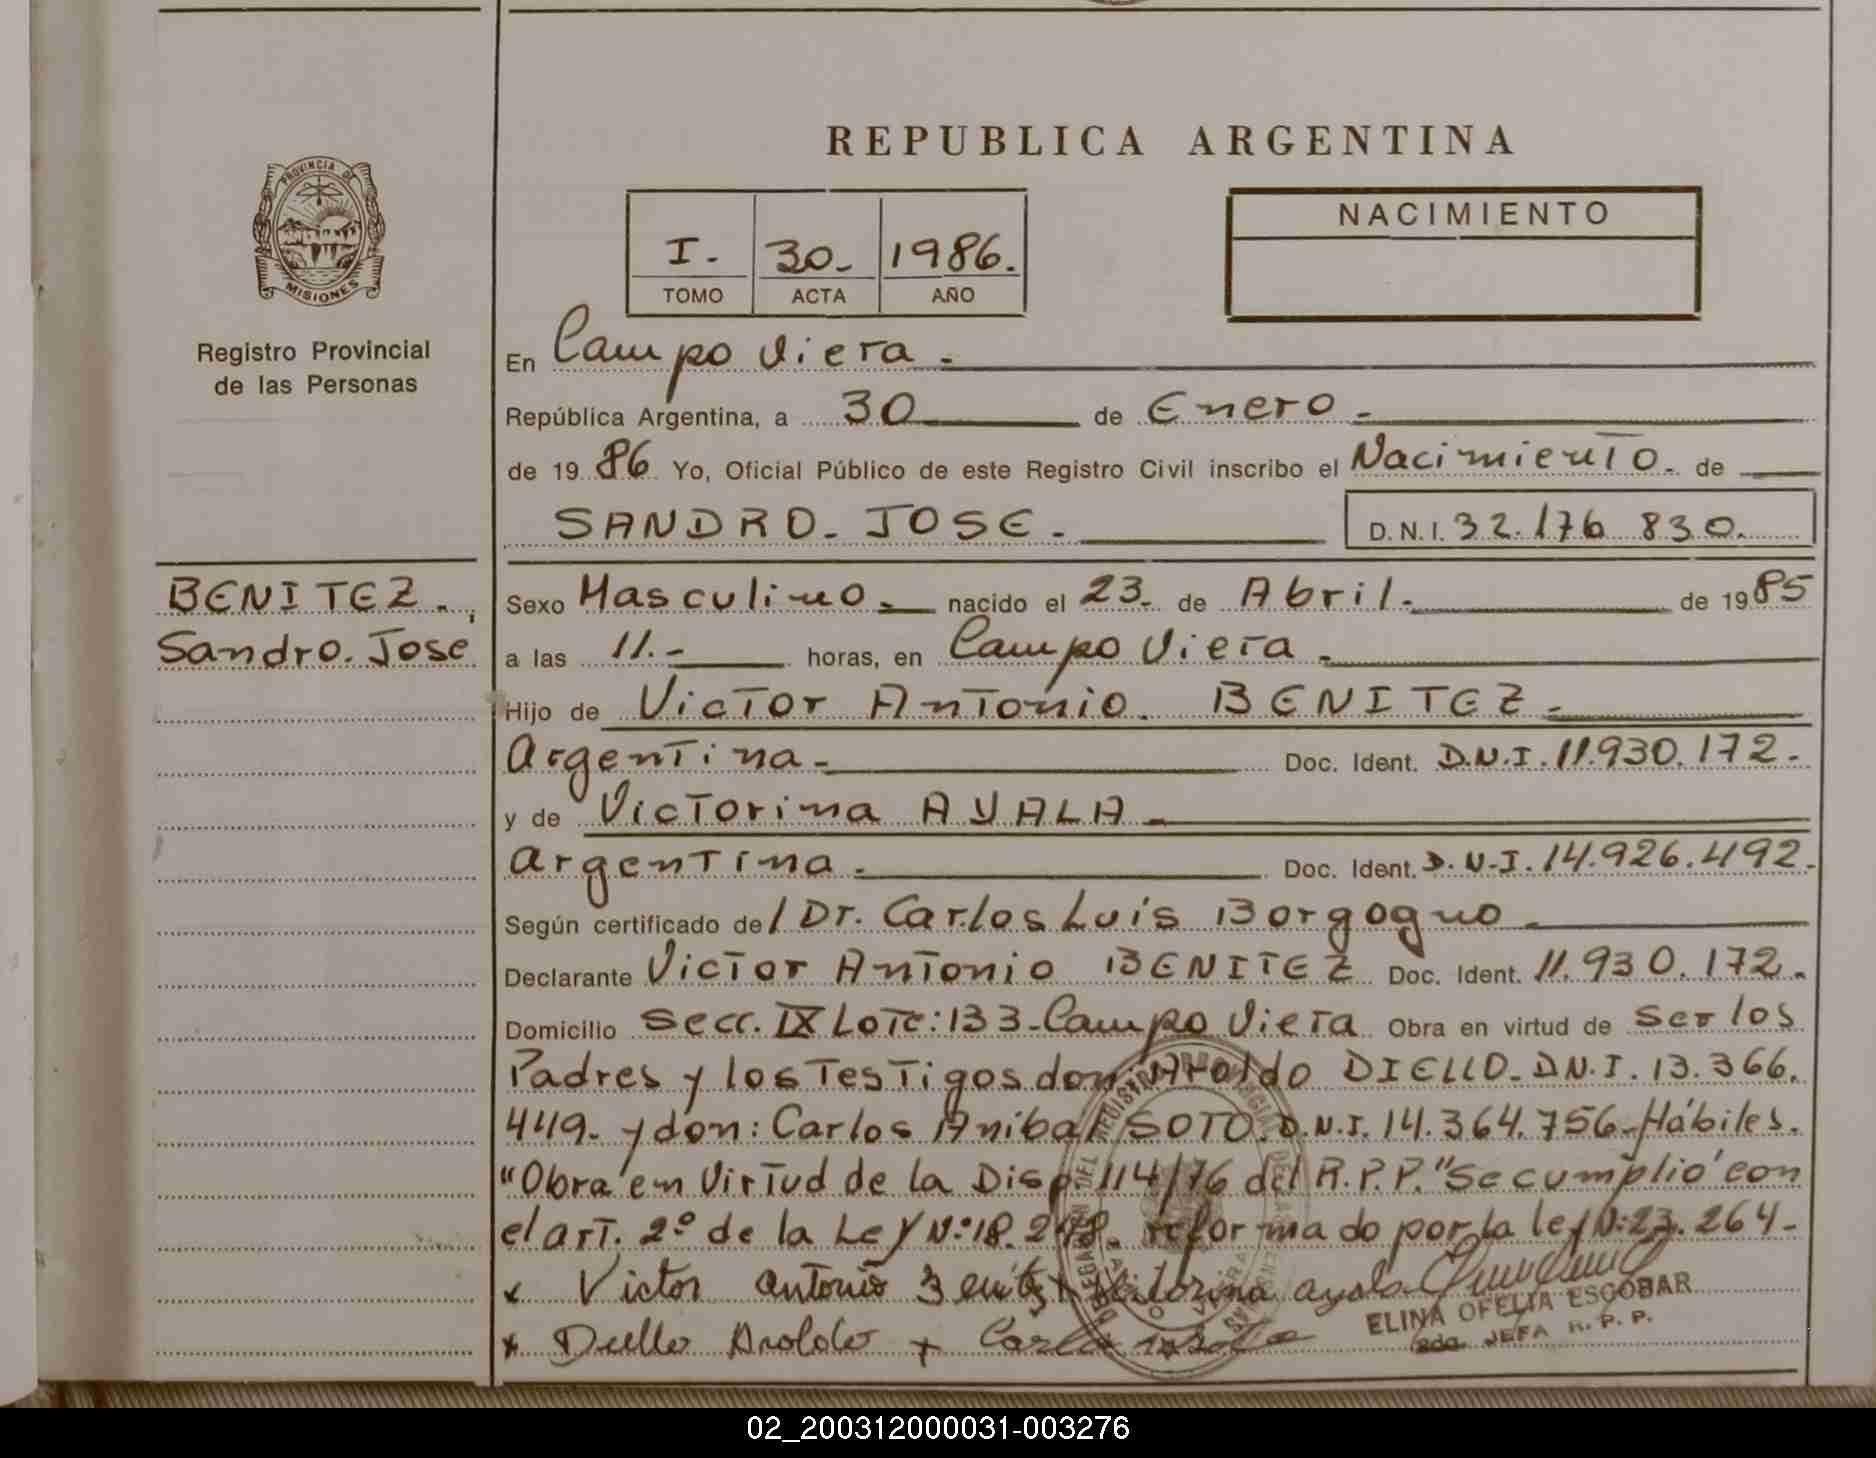 REPUBLICA ARGENTINA
PROVINCIA DE
MISIONES
Registro Provincial
de las Personas
I. 30- 1986.
TOMO ACTA AÑO
NACIMIENTO
En Campo Viera.
República Argentina, a 30 de Enero.
de 19 86 Yo, Oficial Público de este Registro Civil inscribo el Nacimiento. de
SANDRO. JOSE. D.N.I. 32.176 830.
BENITEZ.,
Sandro. Jose
Sexo Masculino. nacido el 23. de Abril. de 19 85
a las 11.- horas, en Campo Viera.
Hijo de Victor Antonio. BENITEZ.
Argentina. Doc. Ident. D.N.I. 11.930.172.
y de Victorina AYALA
Argentina. Doc. Ident. D.N.I. 14.926.492.
Según certificado de/ Dr. Carlos Luis Borgogno
Declarante Victor Antonio BENITEZ Doc. Ident. 11.930.172.
Domicilio Secc. IX Lote: 133-Campo Viera Obra en virtud de ser los
Padres y los Testigos don: Aroldo DIELLO. D.N.I. 13.366.
449- y don: Carlos Anibal SOTO. D.N.I. 14.364.756-Hábiles.
"Obra en Virtud de la Disp. 114/76 del R.P.P." Se cumplio con
el art. 2º de la Ley Nº 18.248. reformado por la ley N: 23.264-
x Victor Antonio Benitez x Victorina ayala
x Diello Aroldo + Carlos
ELINA OFELIA ESCOBAR
JEFA R. P. P.
02_200312000031-003276